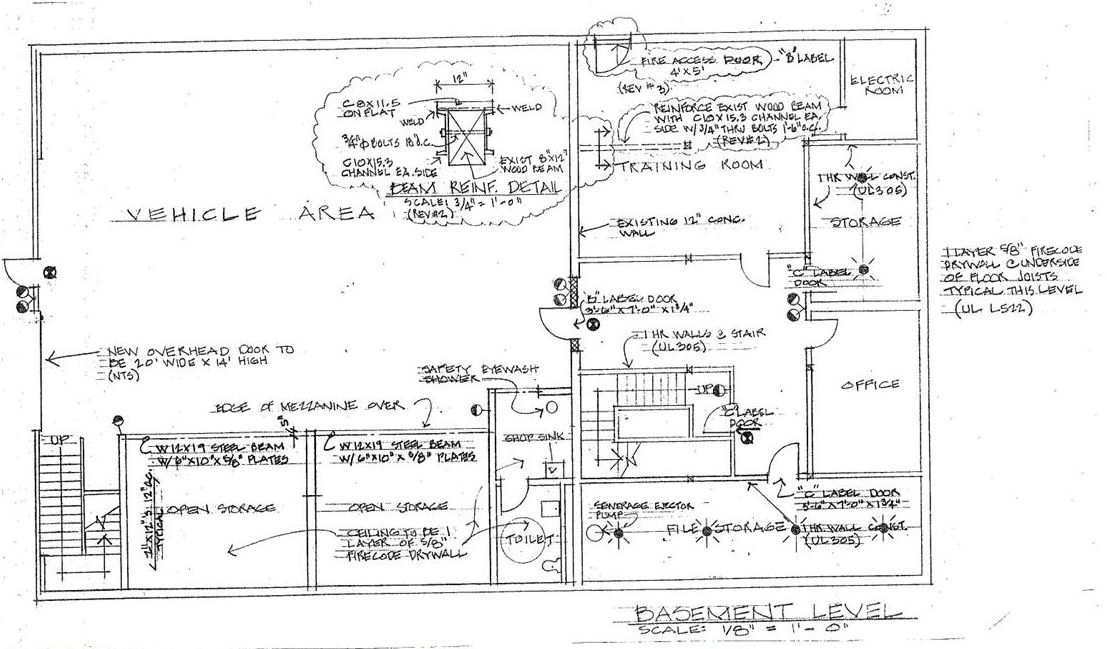 FIRE ACCESS DOOR
4'X5'
"B" LABEL
(REV #3)
ELECTRIC
ROOM
12"
C8X11.5
ON FLAT
WELD
WELD
3/4"φ BOLTS 18" O.C.
C10X15.3
CHANNEL EA. SIDE
EXIST 8"X12"
WOOD BEAM
BEAM REINF. DETAIL
SCALE: 3/4" = 1'-0"
(REV#2)
REINFORCE EXIST WOOD BEAM
WITH C10X15.3 CHANNEL EA.
SIDE W/ 3/4" THRU BOLTS 1'-6" O.C.
(REV#2)
TRAINING ROOM
1 HR WALL CONST.
(UL305)
STORAGE
VEHICLE AREA
EXISTING 12" CONC.
WALL
1 LAYER 5/8" FIRECODE
DRYWALL @ UNDERSIDE
OF FLOOR JOISTS
TYPICAL THIS LEVEL
(UL L522)
"C" LABEL
DOOR
"B" LABEL DOOR
3'-6" X 7'-0" X 1 3/4"
1 HR WALLS @ STAIR
(UL305)
NEW OVERHEAD DOOR TO
BE 20' WIDE X 14' HIGH
(NTS)
SAFETY EYEWASH
SHOWER
OFFICE
UP
EDGE OF MEZZANINE OVER
"C" LABEL
DOOR
UP
W12X19 STEEL BEAM
W/ 6"X10"X5/8" PLATES
W12X19 STEEL BEAM
W/ 6"X10"X5/8" PLATES
SHOP SINK
"C" LABEL DOOR
3'-6" X 7'-0" X 1 3/4"
OPEN STORAGE
OPEN STORAGE
SEWERAGE EJECTOR
PUMP
FILE STORAGE
1 HR WALL CONST.
(UL305)
CEILING TO BE 1
LAYER OF 5/8"
FIRECODE DRYWALL
TOILET
BASEMENT LEVEL
SCALE: 1/8" = 1'-0"